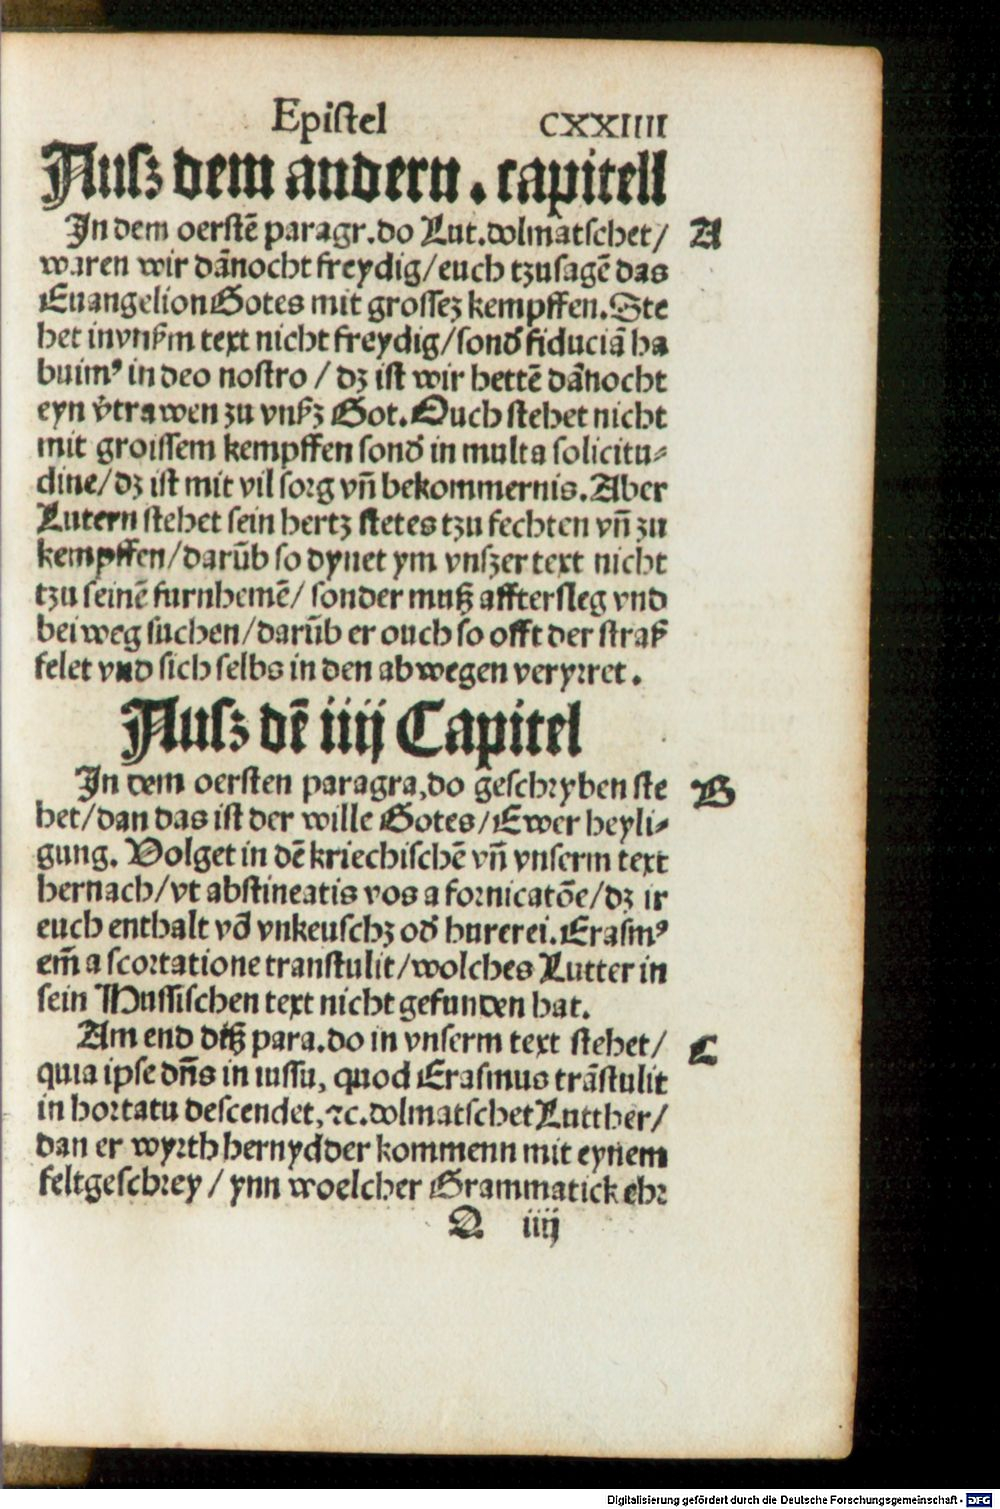 Epistel CXXIIII
Ausz dem andern. capitell
In dem oerstē paragr. do Lut. dolmatschet/ A
waren wir dānocht freydig/euch tzusagē das
Euangelion Gotes mit grossez kempffen. Ste
het in vnßm text nicht freydig/sonď fiduciā ha
buimꝰ in deo nostro / dz ist wir hettē dānocht
eyn v̄trawen zu vnßz Got. Ouch stehet nicht
mit groissem kempffen sonď in multa solicitu⸗
dine/dz ist mit vil sorg vn̄ bekommernis. Aber
Lutern stehet sein hertz stetes tzu fechten vn̄ zu
kempffen/darūb so dynet ym vnszer text nicht
tzu seinē furnhemē/ sonder muß afftersleg vnd
beiweg suchen/darūb er ouch so offt der straß
felet vnd sich selbs in den abwegen veryrret.
Ausz dē iiij Capitel
In dem oersten paragra, do geschryben ste B
het/dan das ist der wille Gotes/Ewer heyli⸗
gung. Volget in dē kriechischē vn̄ vnserm text
hernach/vt abstineatis vos a fornicatōe/dz ir
euch enthalt vō vnkeuschz oď hurerei. Erasmꝰ
em̄ a scortatione transtulit/wolches Lutter in
sein Hussischen text nicht gefunden hat.
Am end diß para. do in vnserm text stehet/ C
quia ipse dn̄s in iussu, quod Erasmus trāstulit
in hortatu descendet, ⁊c. dolmatschet Lutther/
dan er wyrth hernydder kommenn mit eynem
feltgeschrey / ynn woelcher Grammatick ehr
Q iiij
Digitalisierung gefördert durch die Deutsche Forschungsgemeinschaft - DFG